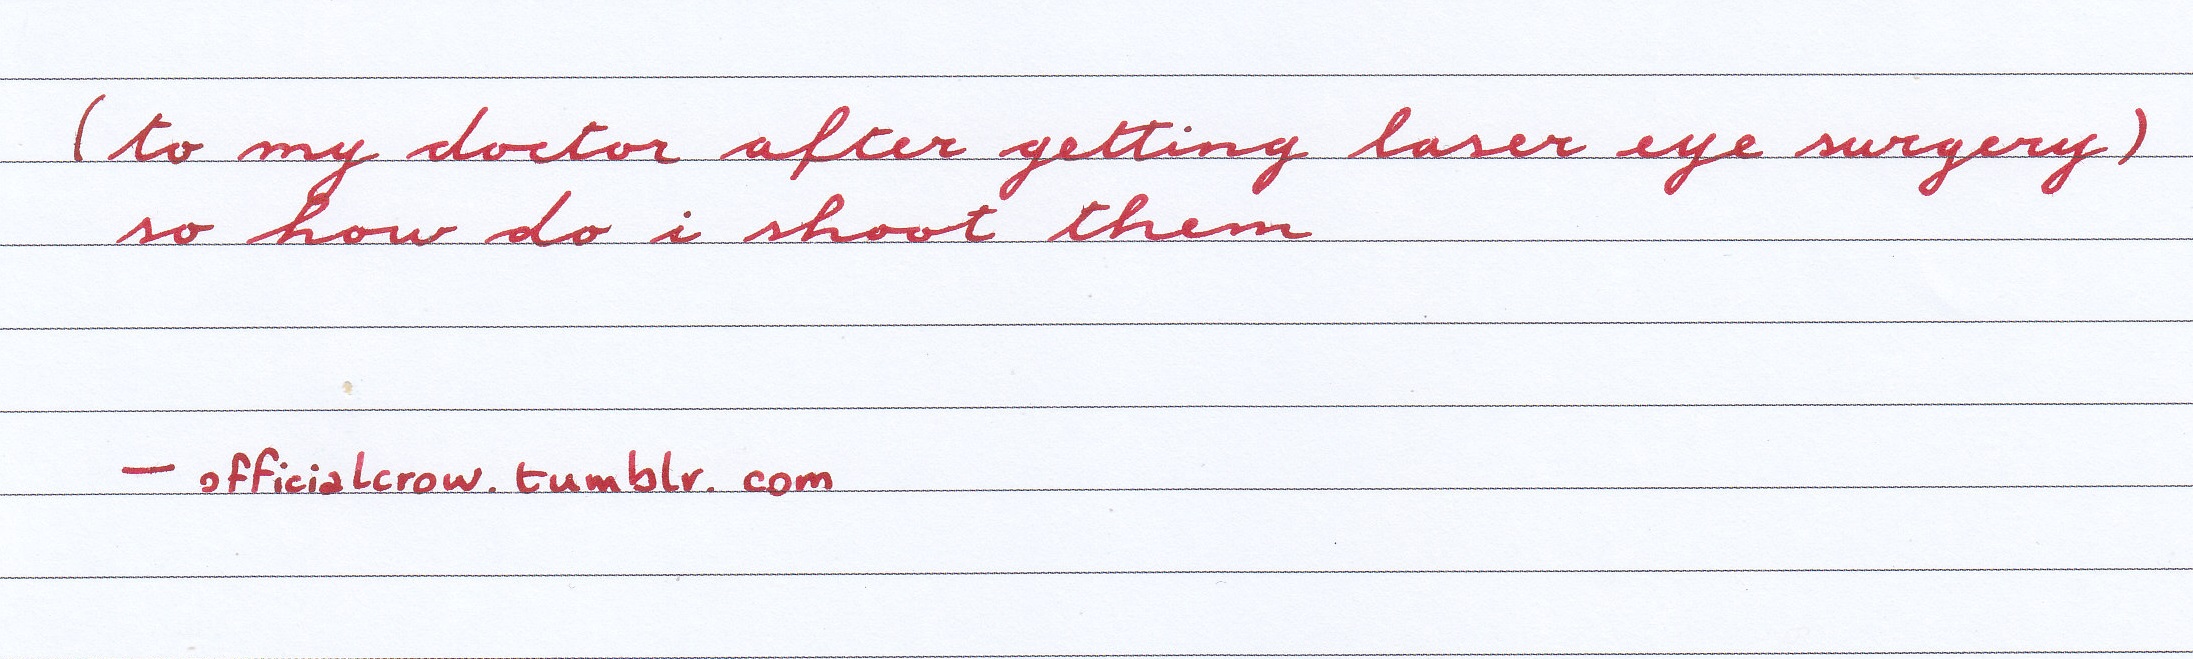 (to my doctor after getting laser eye surgery)
so how do i shoot them
— officialcrow.tumblr.com